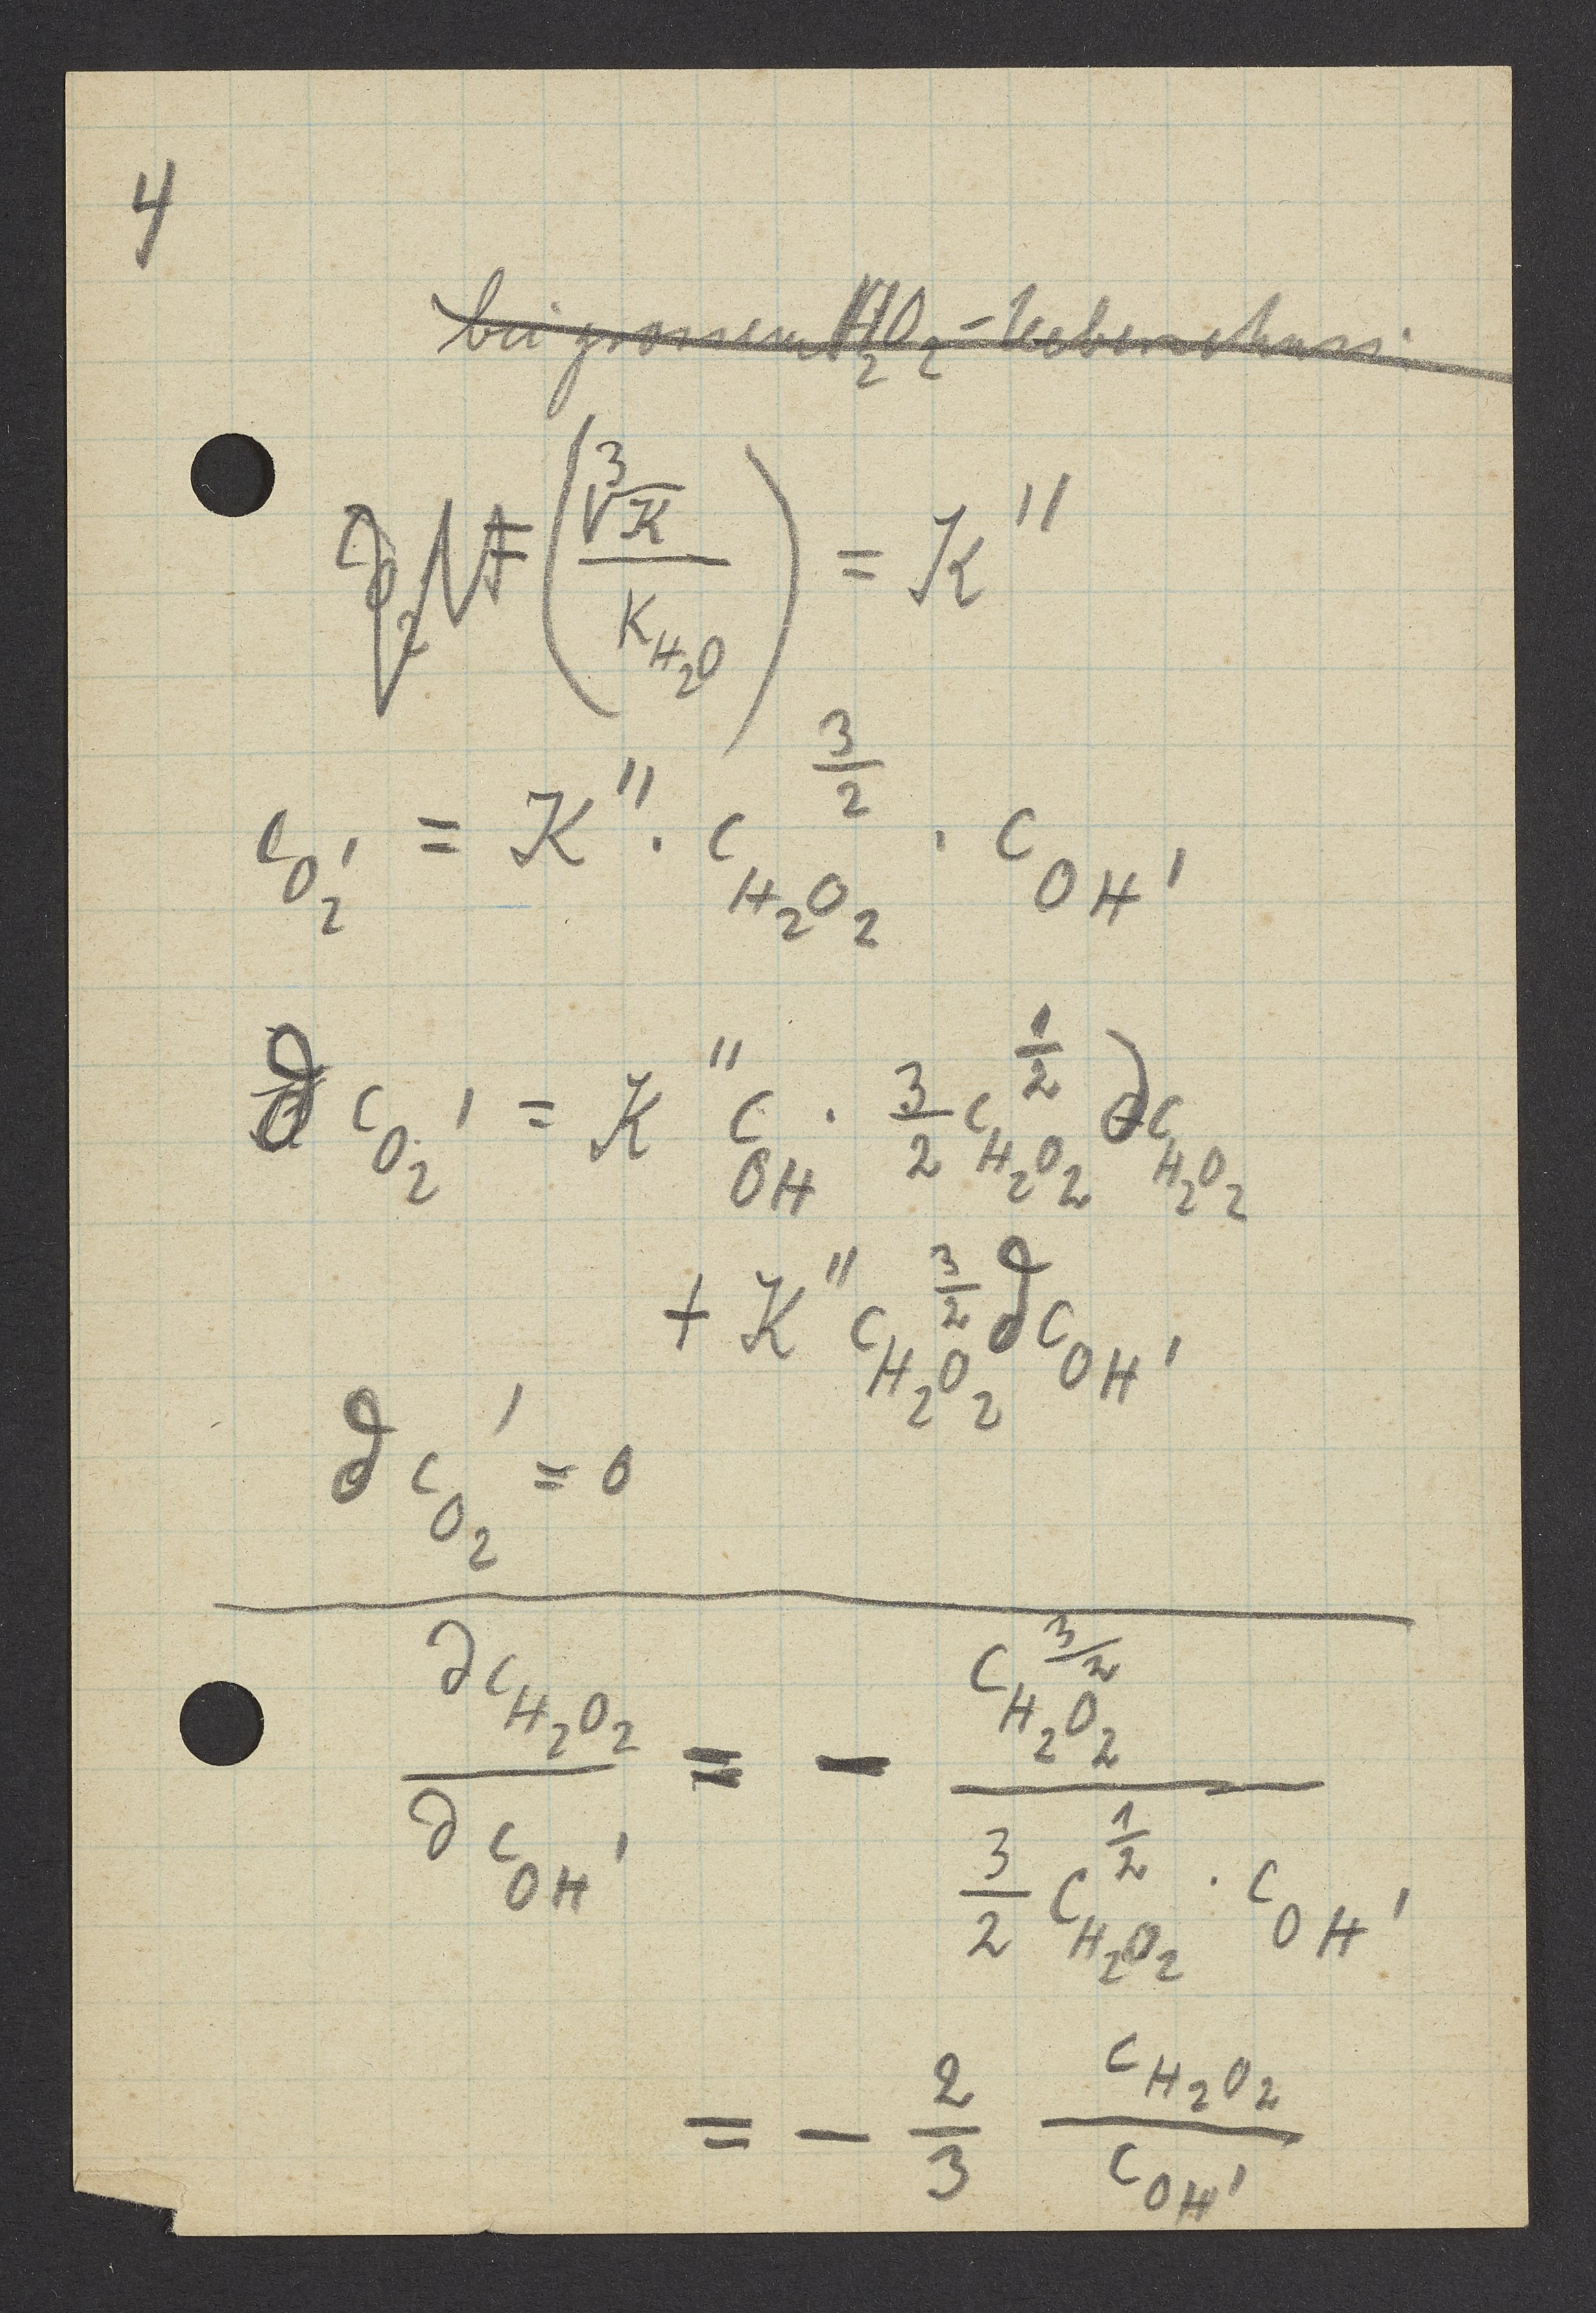 4
bei grossem H₂O₂-Ueberschuss:
(∛K / K_{H₂O}) = K''
c_{O₂'} = K'' · c_{H₂O₂}^{3/2} · c_{OH'}
∂c_{O₂'} = K'' c_{OH} · 3/2 c_{H₂O₂}^{1/2} ∂c_{H₂O₂}
+ K'' c_{H₂O₂}^{3/2} ∂c_{OH'}
∂c_{O₂'} = 0
∂c_{H₂O₂} / ∂c_{OH'} = − c_{H₂O₂}^{3/2} / (3/2 c_{H₂O₂}^{1/2} · c_{OH'})
= − 2/3 c_{H₂O₂} / c_{OH'}